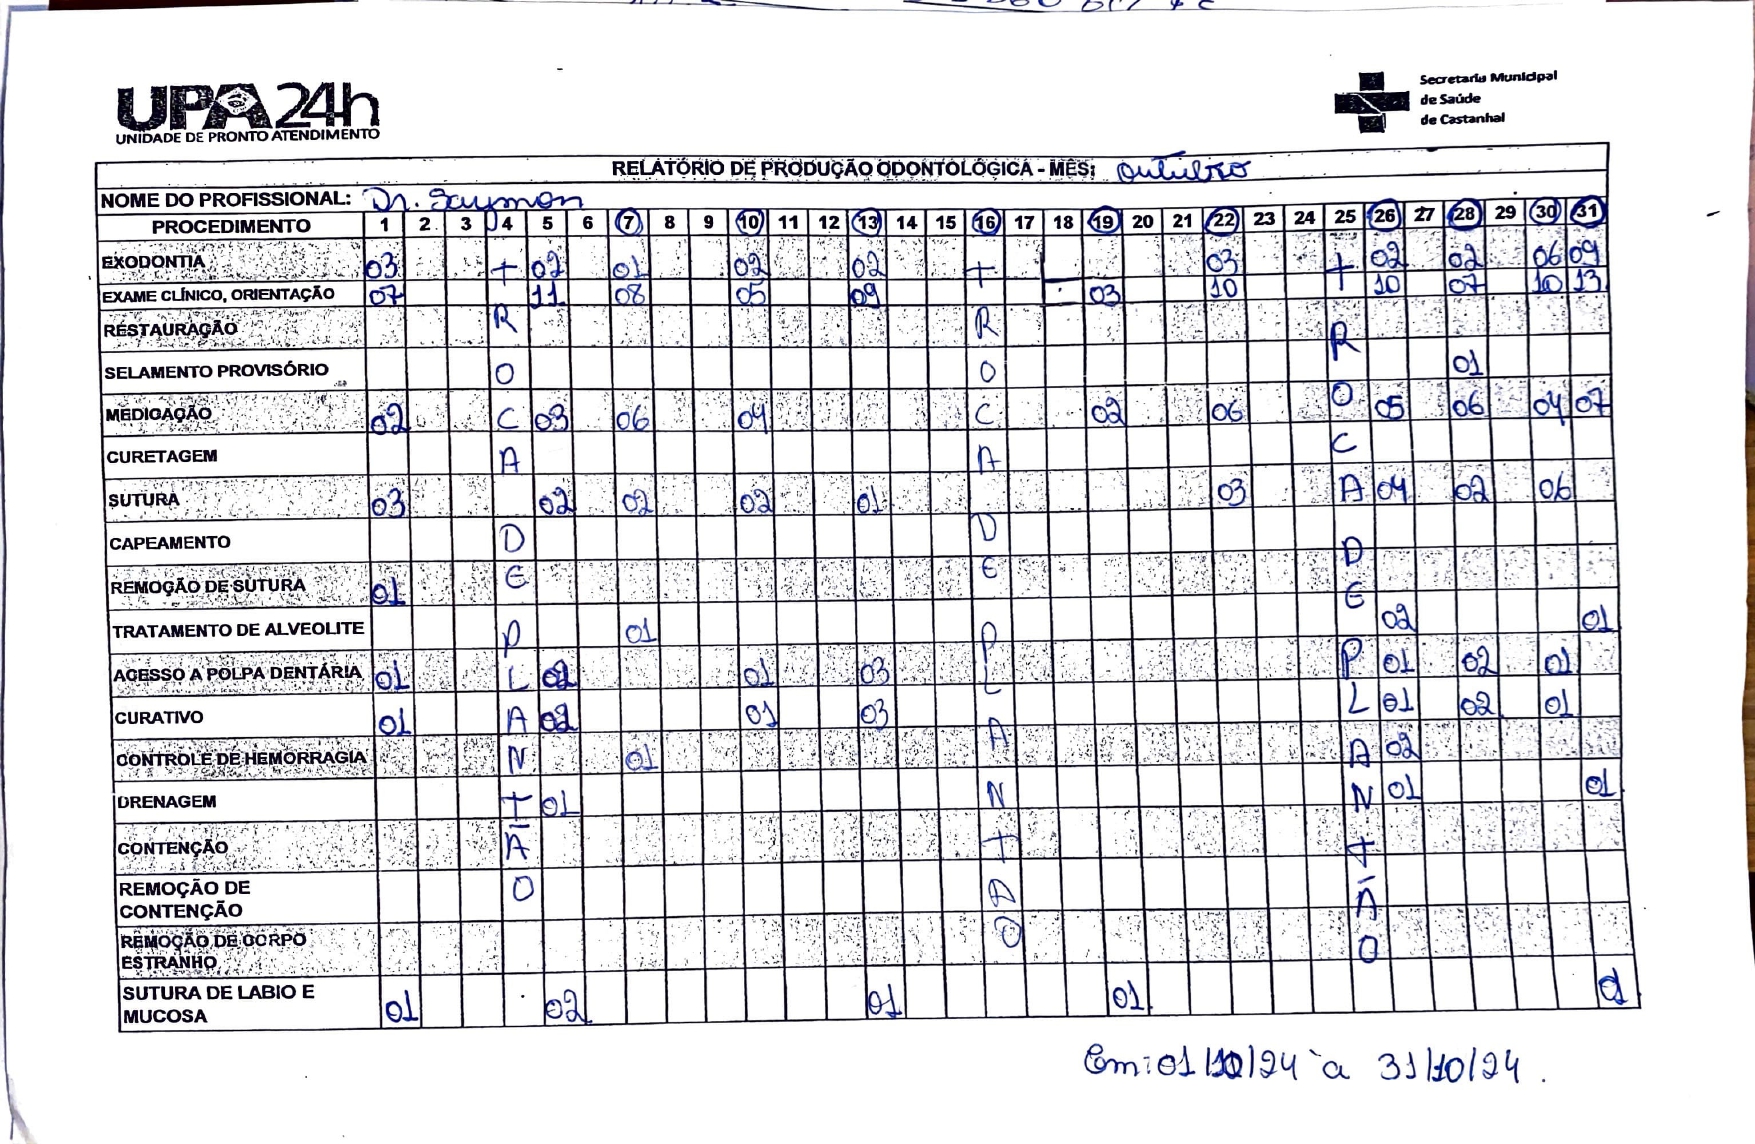 UPA24h
UNIDADE DE PRONTO ATENDIMENTO
Secretaria Municipal
de Saúde
de Castanhal
RELATÓRIO DE PRODUÇÃO ODONTOLÓGICA - MÊS: Outubro
NOME DO PROFISSIONAL: Dr. Saymon
PROCEDIMENTO 1 2 3 4 5 6 7 8 9 10 11 12 13 14 15 16 17 18 19 20 21 22 23 24 25 26 27 28 29 30 31
EXODONTIA 03 T 02 01 02 02 T 03 T 02 02 06 09
EXAME CLÍNICO, ORIENTAÇÃO 07 11 08 05 09 03 10 10 07 10 13
RESTAURAÇÃO R R R
SELAMENTO PROVISÓRIO O O 01
MEDICAÇÃO 02 C 03 06 04 C 02 06 O 05 06 04 07
CURETAGEM A A C
SUTURA 03 02 02 02 01 03 A 04 02 06
CAPEAMENTO D D D
REMOÇÃO DE SUTURA 01 E E E
TRATAMENTO DE ALVEOLITE P 01 P 02 01
ACESSO A POLPA DENTÁRIA 01 L 02 01 03 L P 01 02 01
CURATIVO 01 A 02 01 03 A L 01 02 01
CONTROLE DE HEMORRAGIA N 01 A 02
DRENAGEM T 01 N N 01 01
CONTENÇÃO Ã T T
REMOÇÃO DE CONTENÇÃO O Ã Ã
REMOÇÃO DE CORPO ESTRANHO O O
SUTURA DE LABIO E MUCOSA 01 02 01 01
Em: 01/10/24 à 31/10/24.